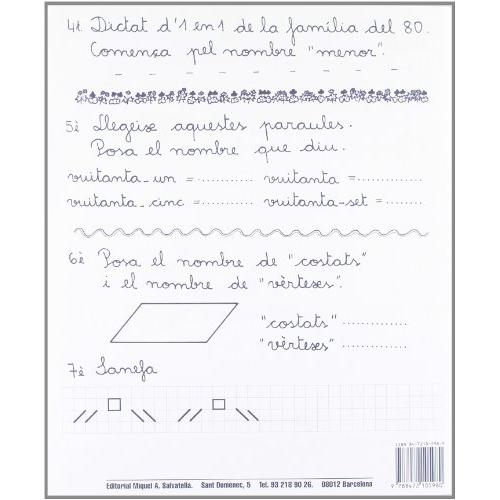 4t Dictat d'1 en 1 de la família del 80.
Comença pel nombre "menor".
5è Llegeix aquestes paraules.
Posa el nombre que diu.
vuitanta-un = ............ vuitanta = ............
vuitanta-cinc = ............ vuitanta-set = ............
6è Posa el nombre de "costats"
i el nombre de "vèrtexs".
"costats" ..............
"vèrtexs" ..............
7è Sanefa
Editorial Miquel A. Salvatella. Sant Domenec, 5 Tel. 93 218 90 26. 08012 Barcelona